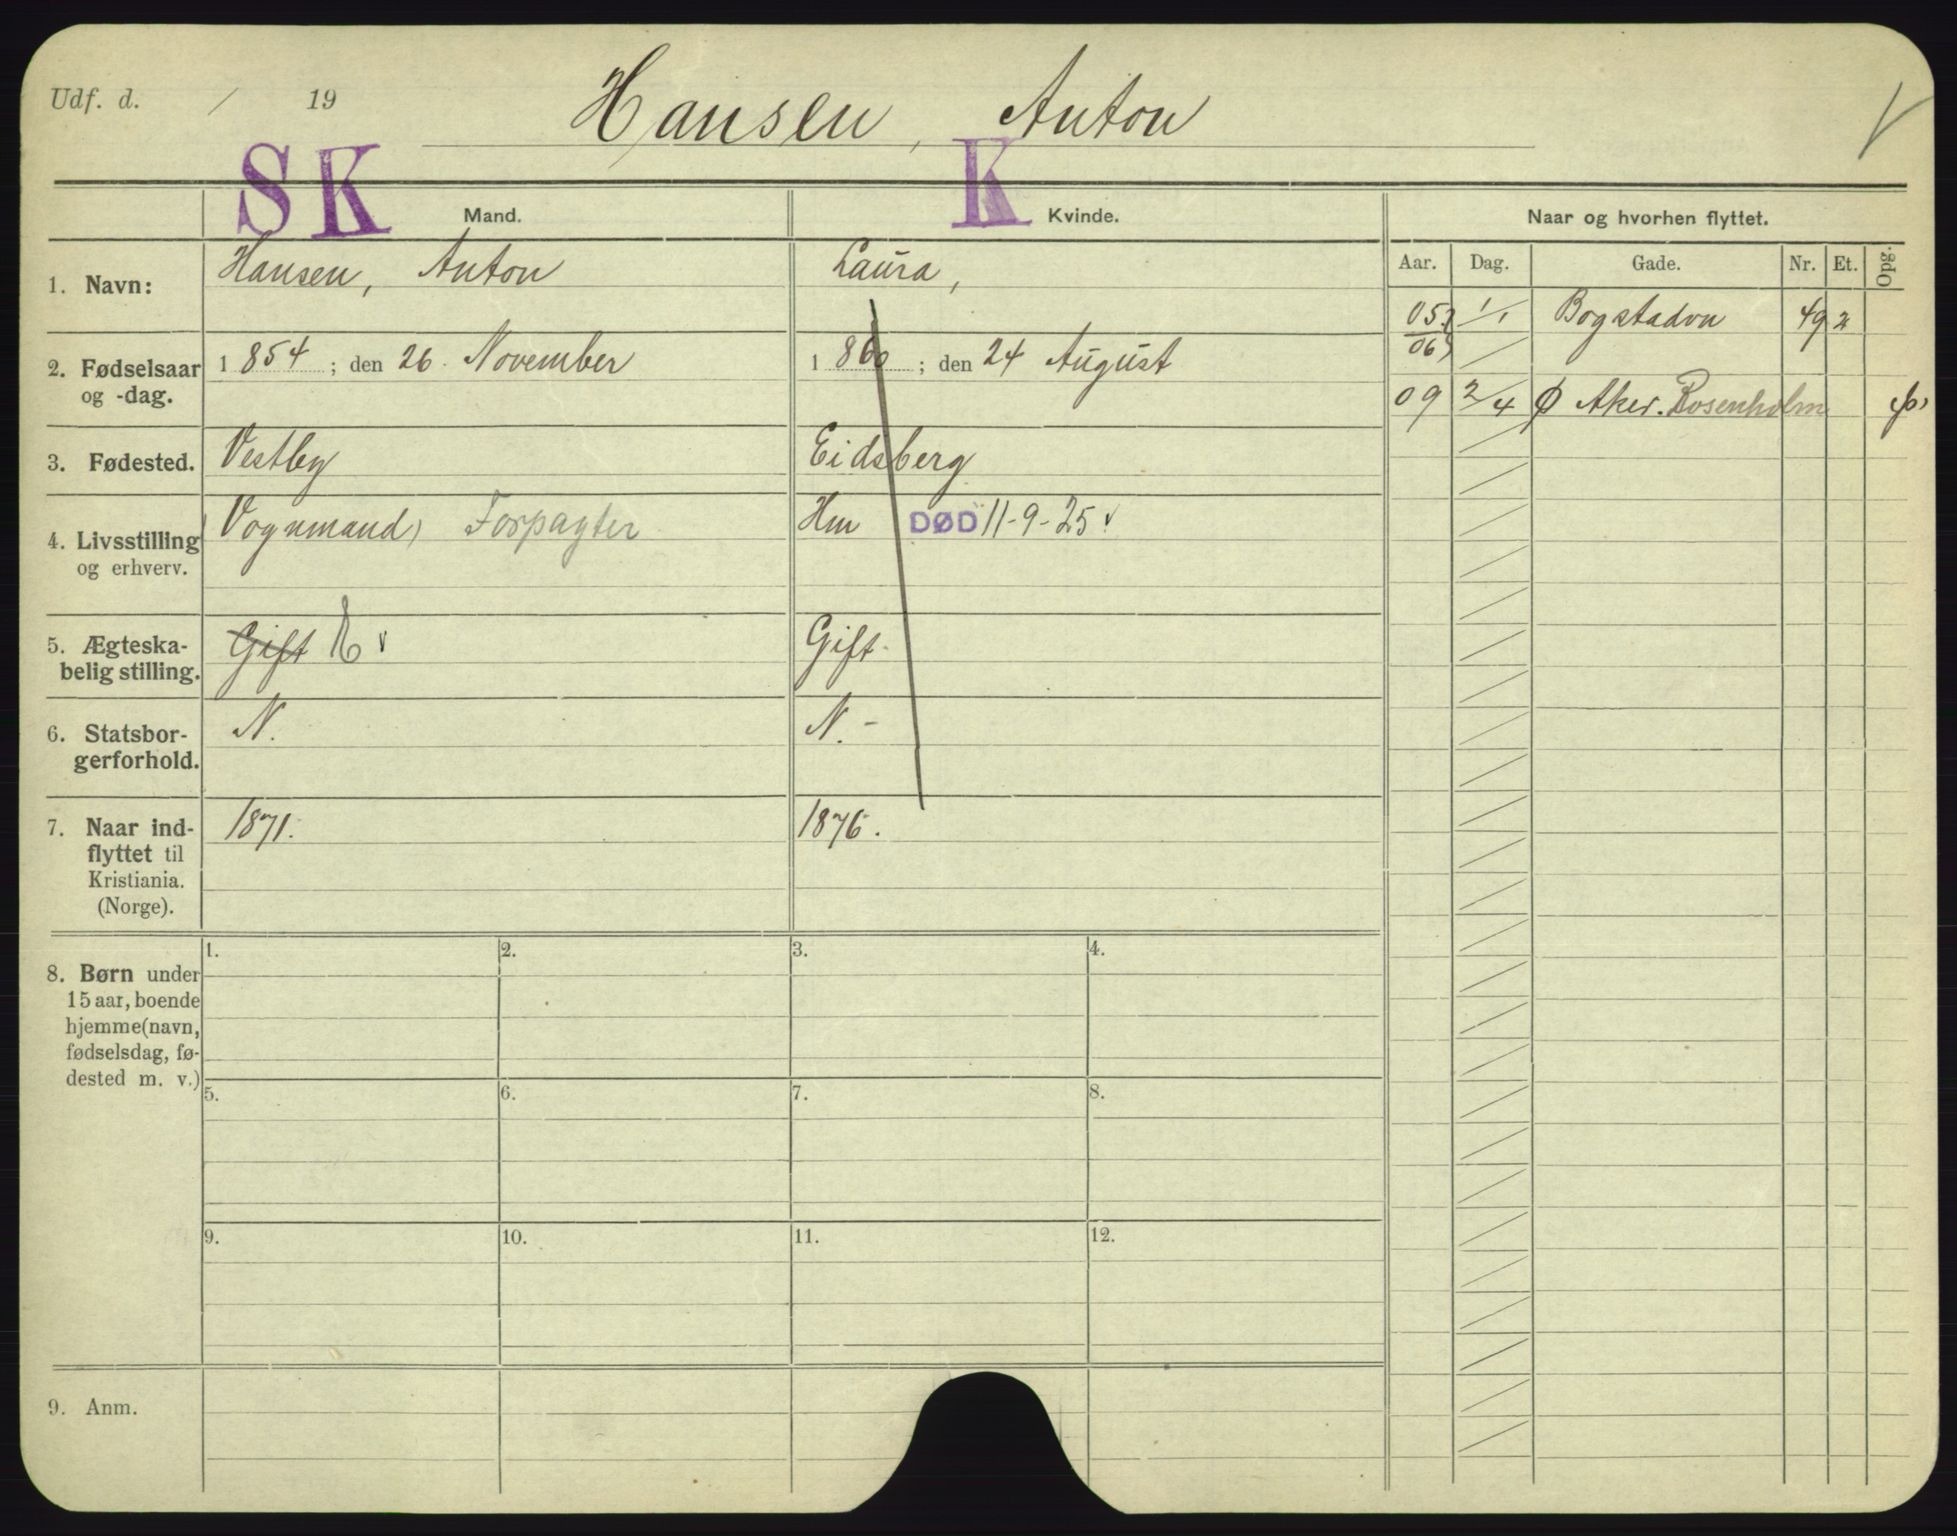 Udf. d. / 19
Hansen, Anton
S K K
Mand. Kvinde. Naar og hvorhen flyttet.
Aar. Dag. Gade. Nr. Et. Opg.
1. Navn: Hansen, Anton Laura,
05 1/1 Bogstadvn 49 2
06
2. Fødselsaar og -dag. 1854; den 26. November 1860; den 24 August
09 2/4 Aker. Rosenholm
3. Fødested. Vestby Eidsberg
4. Livsstilling og erhverv. Vognmand) Forpagter Hm DØD 11-9-25
5. Ægteska-
belig stilling. Gift E Gift
6. Statsbor-
gerforhold. N. N.-
7. Naar ind- 1871. 1876.
flyttet til
Kristiania.
(Norge).
8. Børn under
15 aar, boende
hjemme (navn,
fødselsdag, fø-
dested m. v.)
1. 2. 3. 4.
5. 6. 7. 8.
9. 10. 11. 12.
9. Anm.